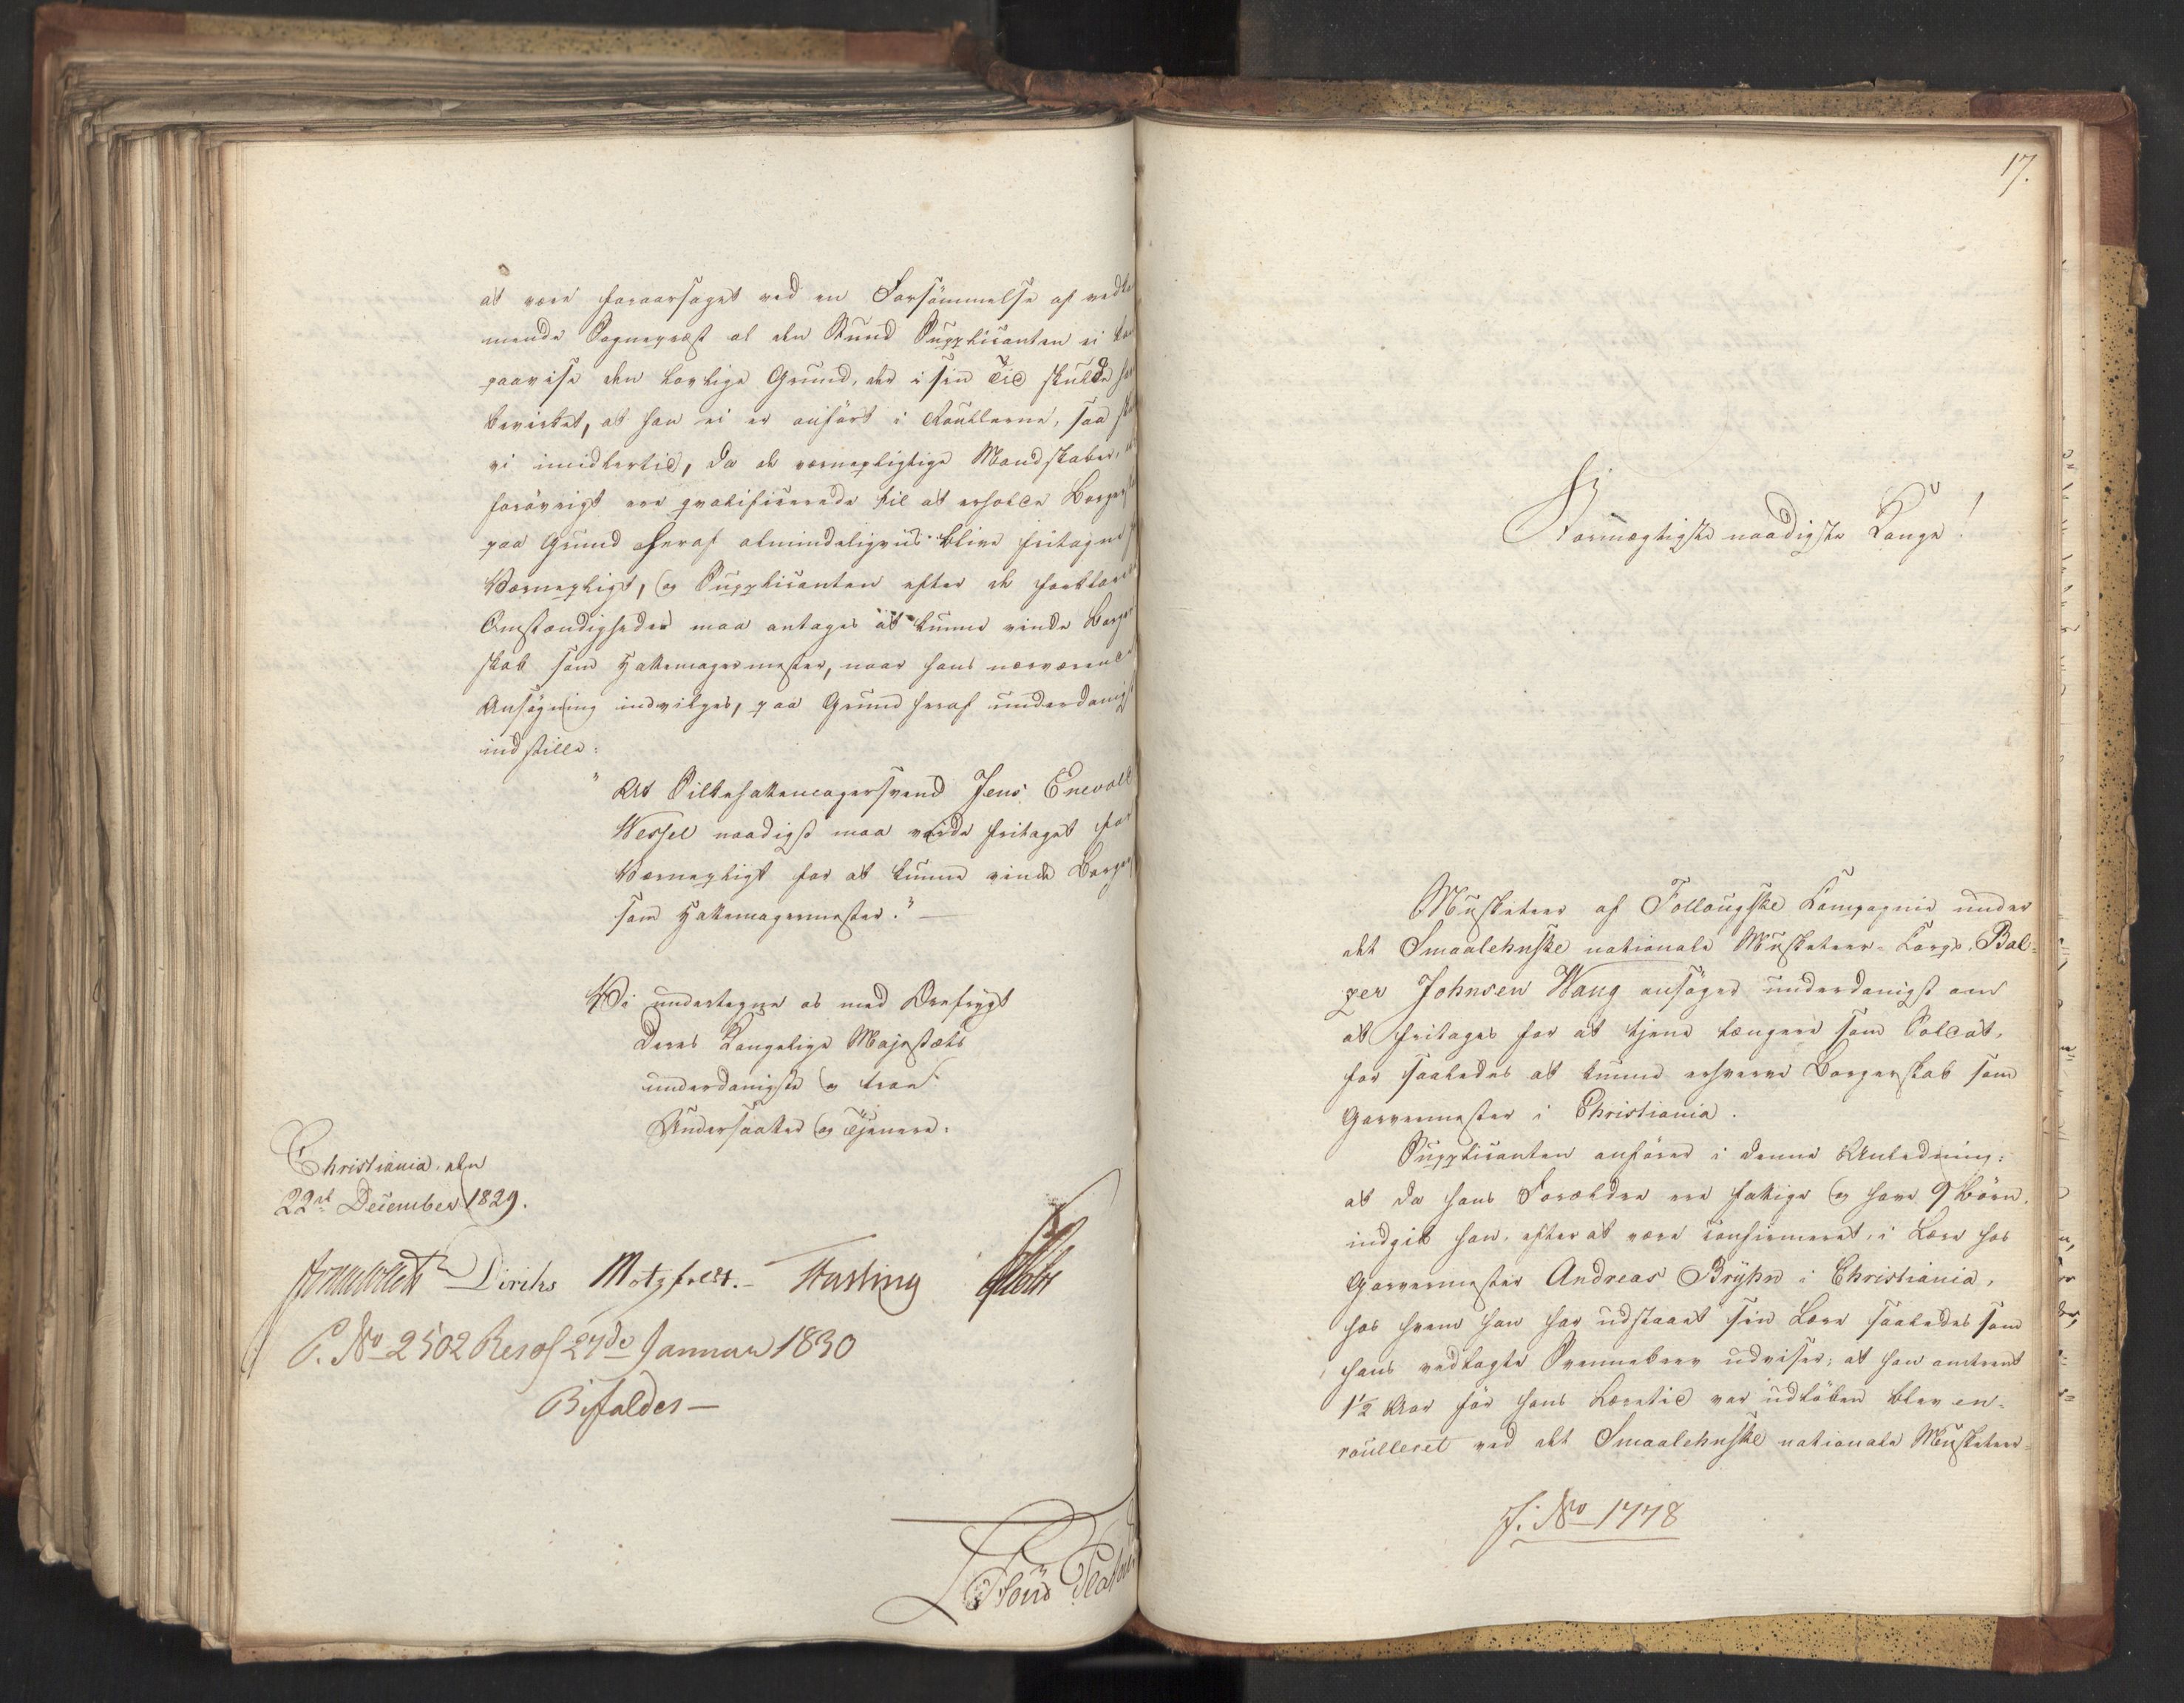 at være foraarsaget ved en Forsömmelse af vedk
mende Sognepræst al den Stund Supplicanten ei
paavise den lovlige Grund, der i sin Tid skulde
bevirket, at han ei er anført i Roullerne, saa
vi imidlertid, da de værnepligtige Mandskaber,
forövrigt ere qvalificerede til at erholde Borger
paa Grund heraf almindeligviis blive fritagne
Værnepligt, og Supplicanten efter de forklarede
Omstændigheder maa antages at kunne vinde Borger
skab som Hattemagermester, naar hans nærværende
Ansøgning indvilges, paa Grund heraf underdanigst
indstille:
"At Silkehattemagersvend Jens Enevold
Wessel naadigst maa vorde fritaget for
Værnepligt for at kunne vinde Borger
som Hattemagermester." —
Vi undertegne os med Ærefrygt
Deres Kongelige Majestæts
underdanigste og troe
Undersaatter og Tjenere.
Christiania, den
22de December 1829.
Diriks Motzfeldt. Fasting
P. No 2502 Res of 27de Januar 1830
Bifaldes —
17.
Stormægtigste naadigste Konge!
Musketeer af Follougske Kompagnie under
det Smaalehnske nationale Musketeer-Corps, Bal-
zer Johnsen Wang ansøger underdanigst om
at fritages for at tjene længere som Soldat,
for saaledes at kunne erhverve Borgerskab som
Garvermester i Christiania.
Supplicanten anförer i denne Anledning:
at da hans Forældre ere fattige og have 9 Börn,
indgik han, efter at være confirmeret, i Lære hos
Garvermester Andreas Brÿhn i Christiania,
hos hvem han har udstaaet sin Lære saaledes som
hans vedlagte Svennebrev udviser; at han omtrent
1½ Aar för hans Læretid var udlöben blev en-
roulleret ved det Smaalehnske nationale Musketeer-
J. No 1778